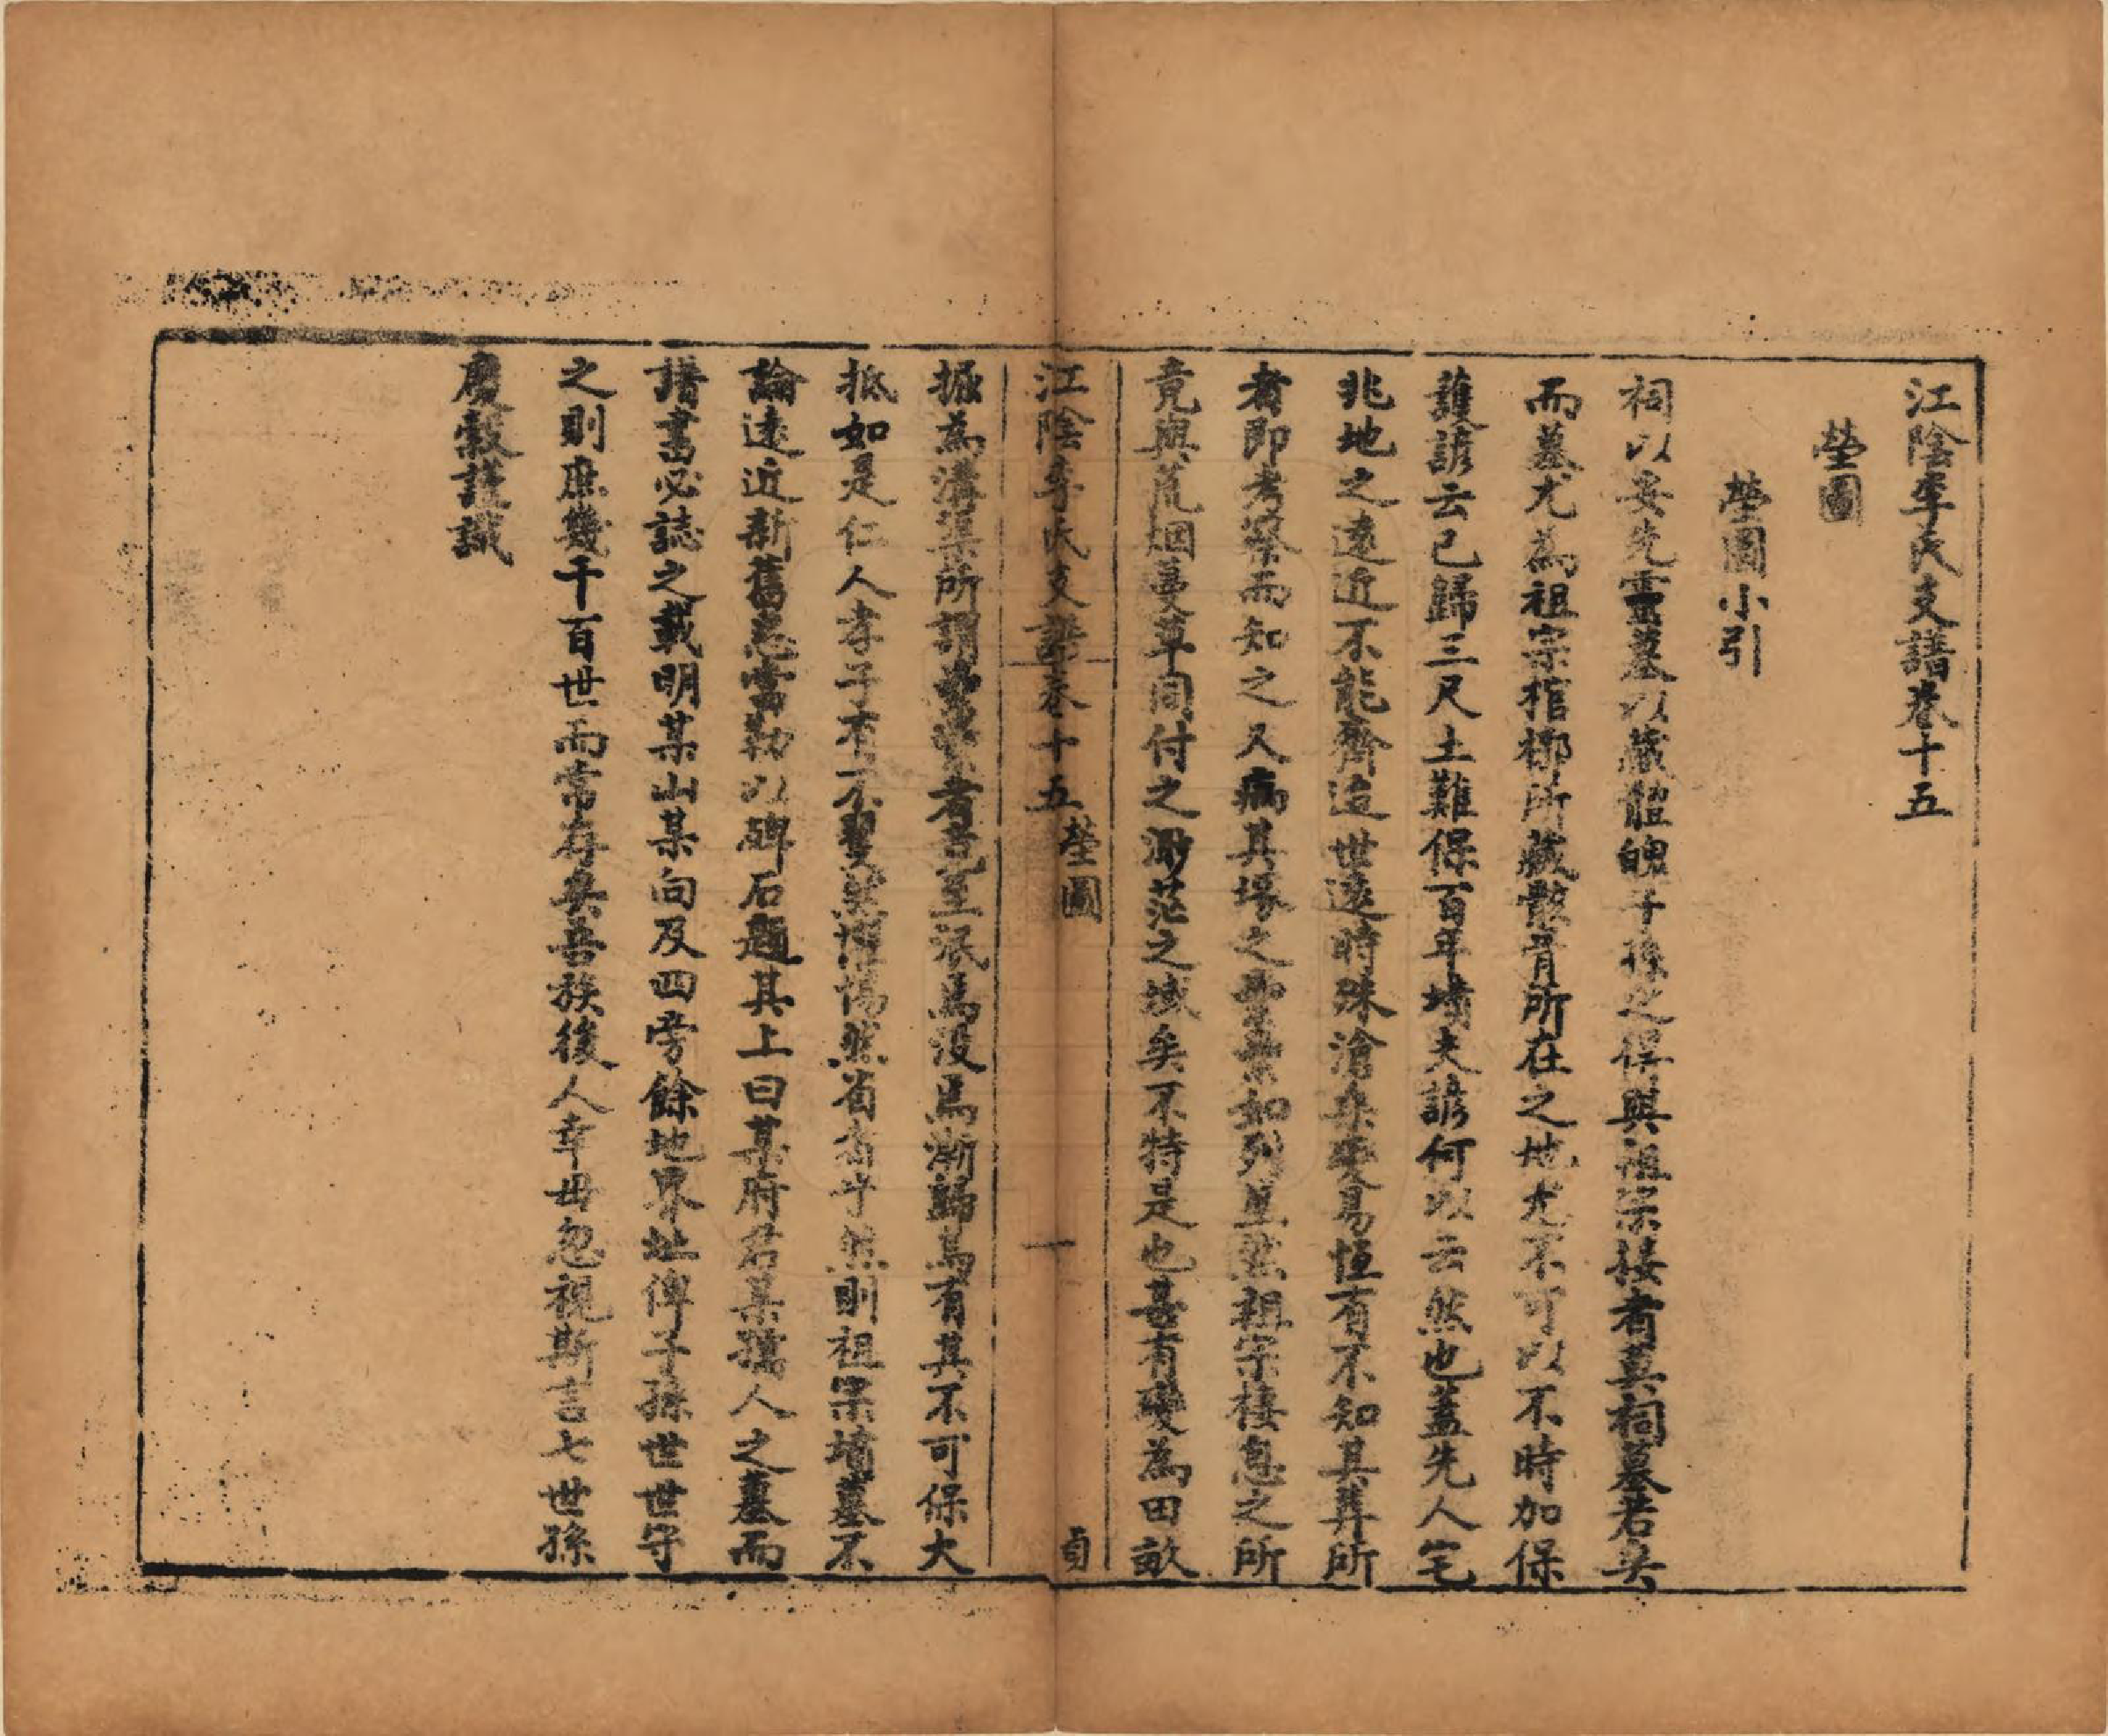 江陰李氏支譜卷十五
塋圖
塋圖小引
祠以妥先靈墓以藏體魄子孫之得與祖宗接者莫祠墓若矣
而墓尤為祖宗棺槨所藏骸骨所在之地尤不可以不時加保
護諺云已歸三尺土難保百年墳夫諺何以云然也蓋先人宅
兆地之遠近不能齊迨世遠時殊滄桑變易恒有不知其葬所
者即考察而知之又病其塚之纍纍如列星然祖宗棲息之所
竟與荒烟蔓草同付之渺茫之域矣不特是也甚有變為田畝
江陰李氏支譜卷十五 塋圖 一 貞
掘為溝渠所謂纍纍者忽至泯焉沒焉漸歸烏有其不可保大
抵如是仁人孝子有不瞿然惕然者乎然則祖宗墳墓不
論遠近新舊悉當勒以碑石題其上曰某府君某孺人之墓而
譜書必誌之載明某山某向及四旁餘地界址俾子孫世世守
之則庶幾千百世而常存矣吾族後人幸毋忽視斯言七世孫
慶穀謹識